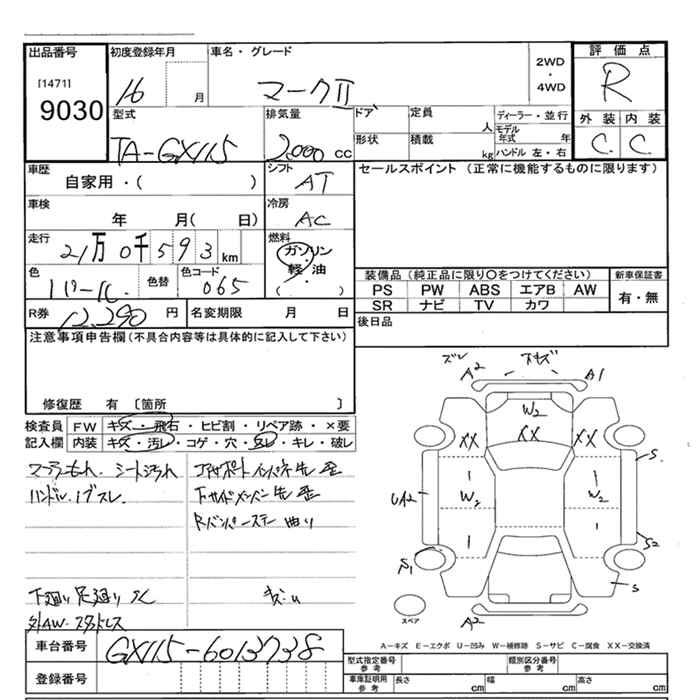 出品番号 初度登録年月 車名・グレード 評価点
[1471] 9030
16 月 マークⅡ 2WD・4WD R
型式 排気量 ドア 定員 人 ディーラー・並行 外装 内装
TA-GX115 2,000 cc 形状 積載 kg モデル年式 年 ハンドル 左・右 C C
車歴 シフト セールスポイント (正常に機能するものに限ります)
自家用・( ) AT
車検 年 月( 日) 冷房 AC
走行 21万0千593km 燃料 ガソリン
軽・油
( )
色 色替 色コード 065
装備品(純正品に限り○をつけてください) 新車保証書
PS PW ABS エアB AW 有・無
SR ナビ TV カワ
R券 12,290 円 名変期限 月 日 後日品
注意事項申告欄(不具合内容等は具体的に記入して下さい)
修復歴 有 〔箇所 〕
検査員 FW キズ・飛石・ヒビ割・リペア跡・×要
記入欄 内装 キズ・汚レ・コゲ・穴・スレ・キレ・破レ
シート汚れ
ハンドル
下廻り足廻りサビ
A2 A1
W2
XX XX XX
S
UA2 W2 W2
S2
S1
S
A2
スペア
A-キズ E-エクボ U-凹み W-補修跡 S-サビ C-腐食 XX-交換済
車台番号 GX115-6013738
登録番号
型式指定番号 参考 類別区分番号 参考
車庫証明用 参考 長さ cm 幅 cm 高さ cm